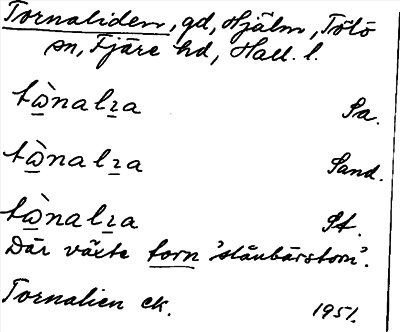 Tornaliden, gd, Hjälm, Tölö
sn, Fjäre hd, Hall. l.
tὼ̠nalɿ̠a Sa.
tὼ̠nalɿ̠a Sand.
tὼ̠nalɿ̠a St.
Där växte torn 'slånbärstorn'.
Tornalien ek. 1951.